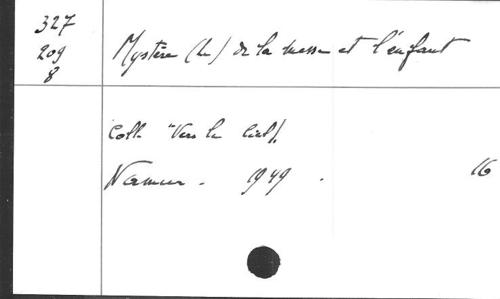 327
209
8
Mystère (Le) de la messe et l'enfant
Coll. "Vers le ciel".
Namur. 1949. 16